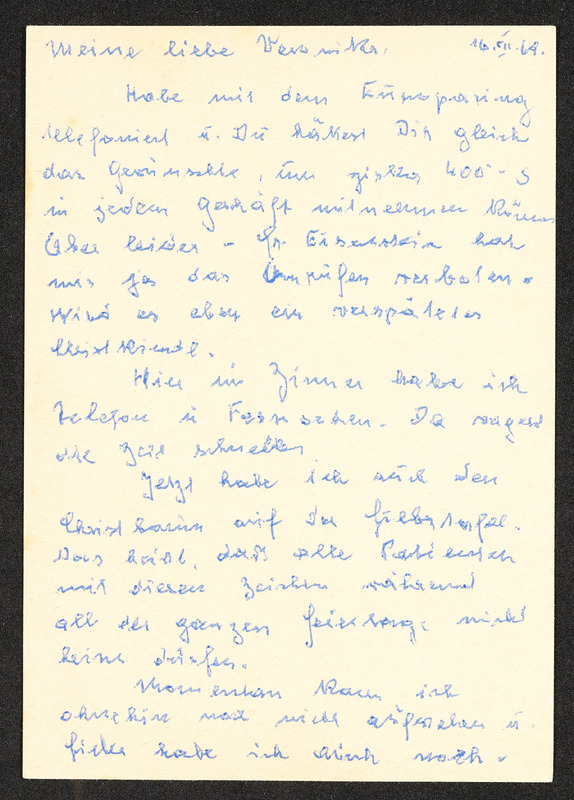 Meine liebe Veronika. 16.XII.68.
Habe mit dem
telefoniert u. Du hättest Dir gleich
das Gewünschte, um zirka 400.- S
in jedem Geschäft mitnehmen können
Aber leider - Fr. Eisenstein hat
mir ja das Anrufen verboten.
Wird es eben ein verspätetes
Christkindl.
Hier im Zimmer habe ich
Telefon u Fernsehen. Da vergeht
die Zeit schneller
Jetzt habe ich auch den
Christbaum auf der Fiebertafel.
Das heißt, daß alle Patienten
mit diesem Zeichen während
all der ganzen Feiertage nicht
heim dürfen.
Momentan kann ich
ohnehin noch nicht aufstehen u.
Fieber habe ich auch noch.